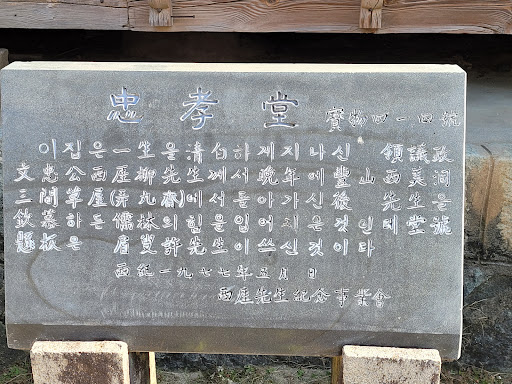 忠孝堂 寶物四一四號
이 집은 一生을 清白하게 지나신 領議政
文忠公西厓柳先生께서 晩年에 豊山西美洞
三間草屋(倂九齋)에서 돌아가신 後 先生을
欽慕하든 儒林의 힘을 입어 지은 것인데 堂號
懸板은 眉叟許先生이 쓰신 것이라
西紀一九七七年五月 日
西厓先生紀念事業會